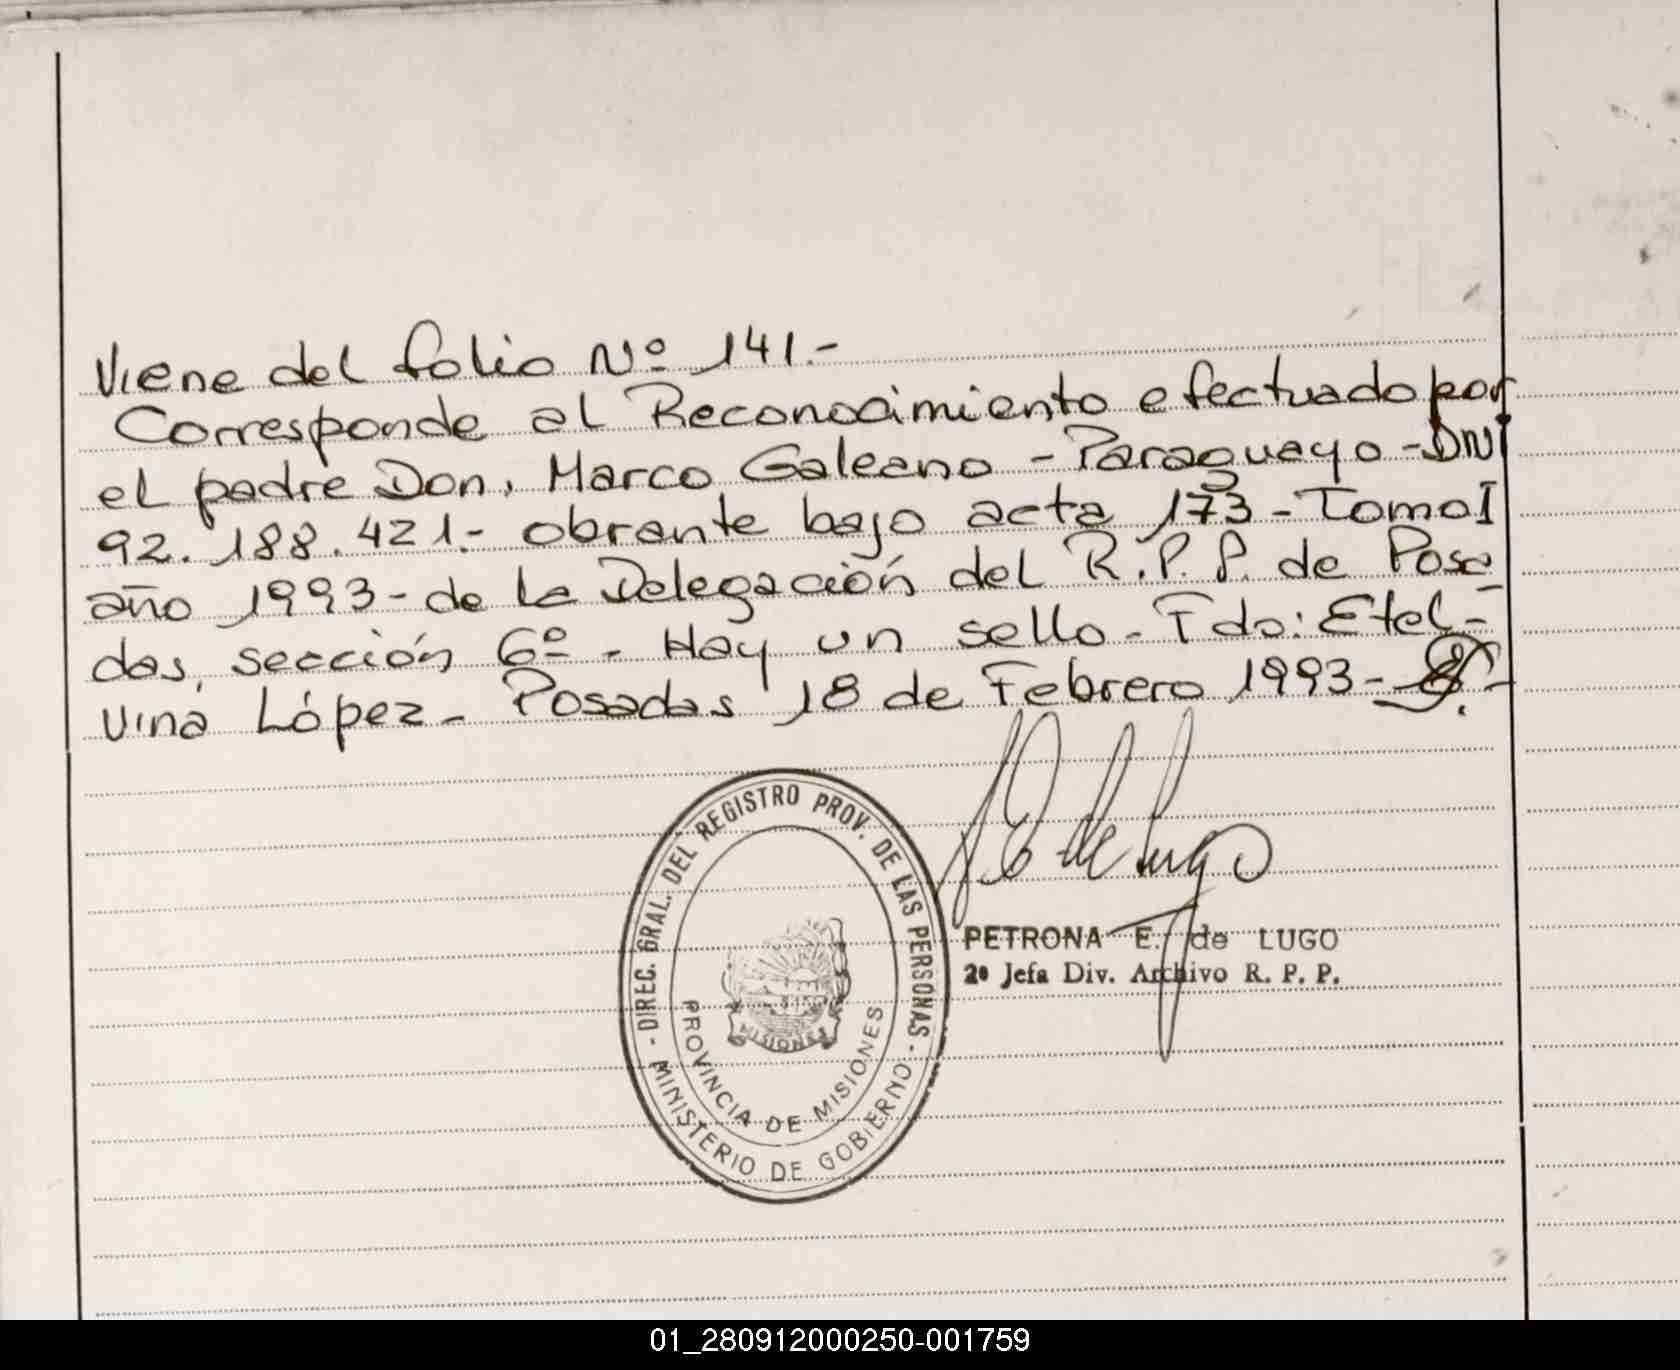 Viene del folio Nº 141.-
Corresponde al Reconocimiento efectuado por
el padre Don, Marco Galeano - Paraguayo - DNI
92.188.421.- obrante bajo acta 173 - Tomo I
año 1993 - de la Delegación del R.P.P. de Posa
das, sección 6º - Hay un sello - Fdo: Etel-
vina López - Posadas 18 de Febrero 1993 -
P E de Lugo
PETRONA E. de LUGO
2º Jefa Div. Archivo R. P. P.
- DIREC. GRAL. DEL REGISTRO PROV. DE LAS PERSONAS -
MINISTERIO DE GOBIERNO
PROVINCIA DE MISIONES
MISIONES
01_280912000250-001759